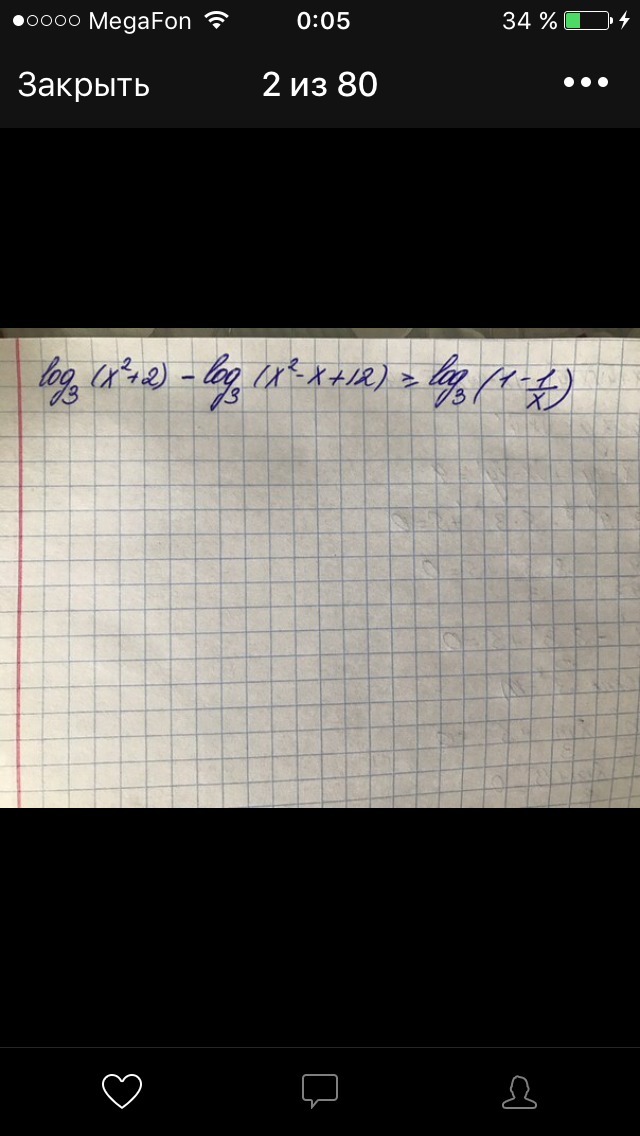 MegaFon 0:05 34 %
Закрыть 2 из 80
log₃ (x²+2) - log₃ (x²-x+12) ≥ log₃ (1-1/x)